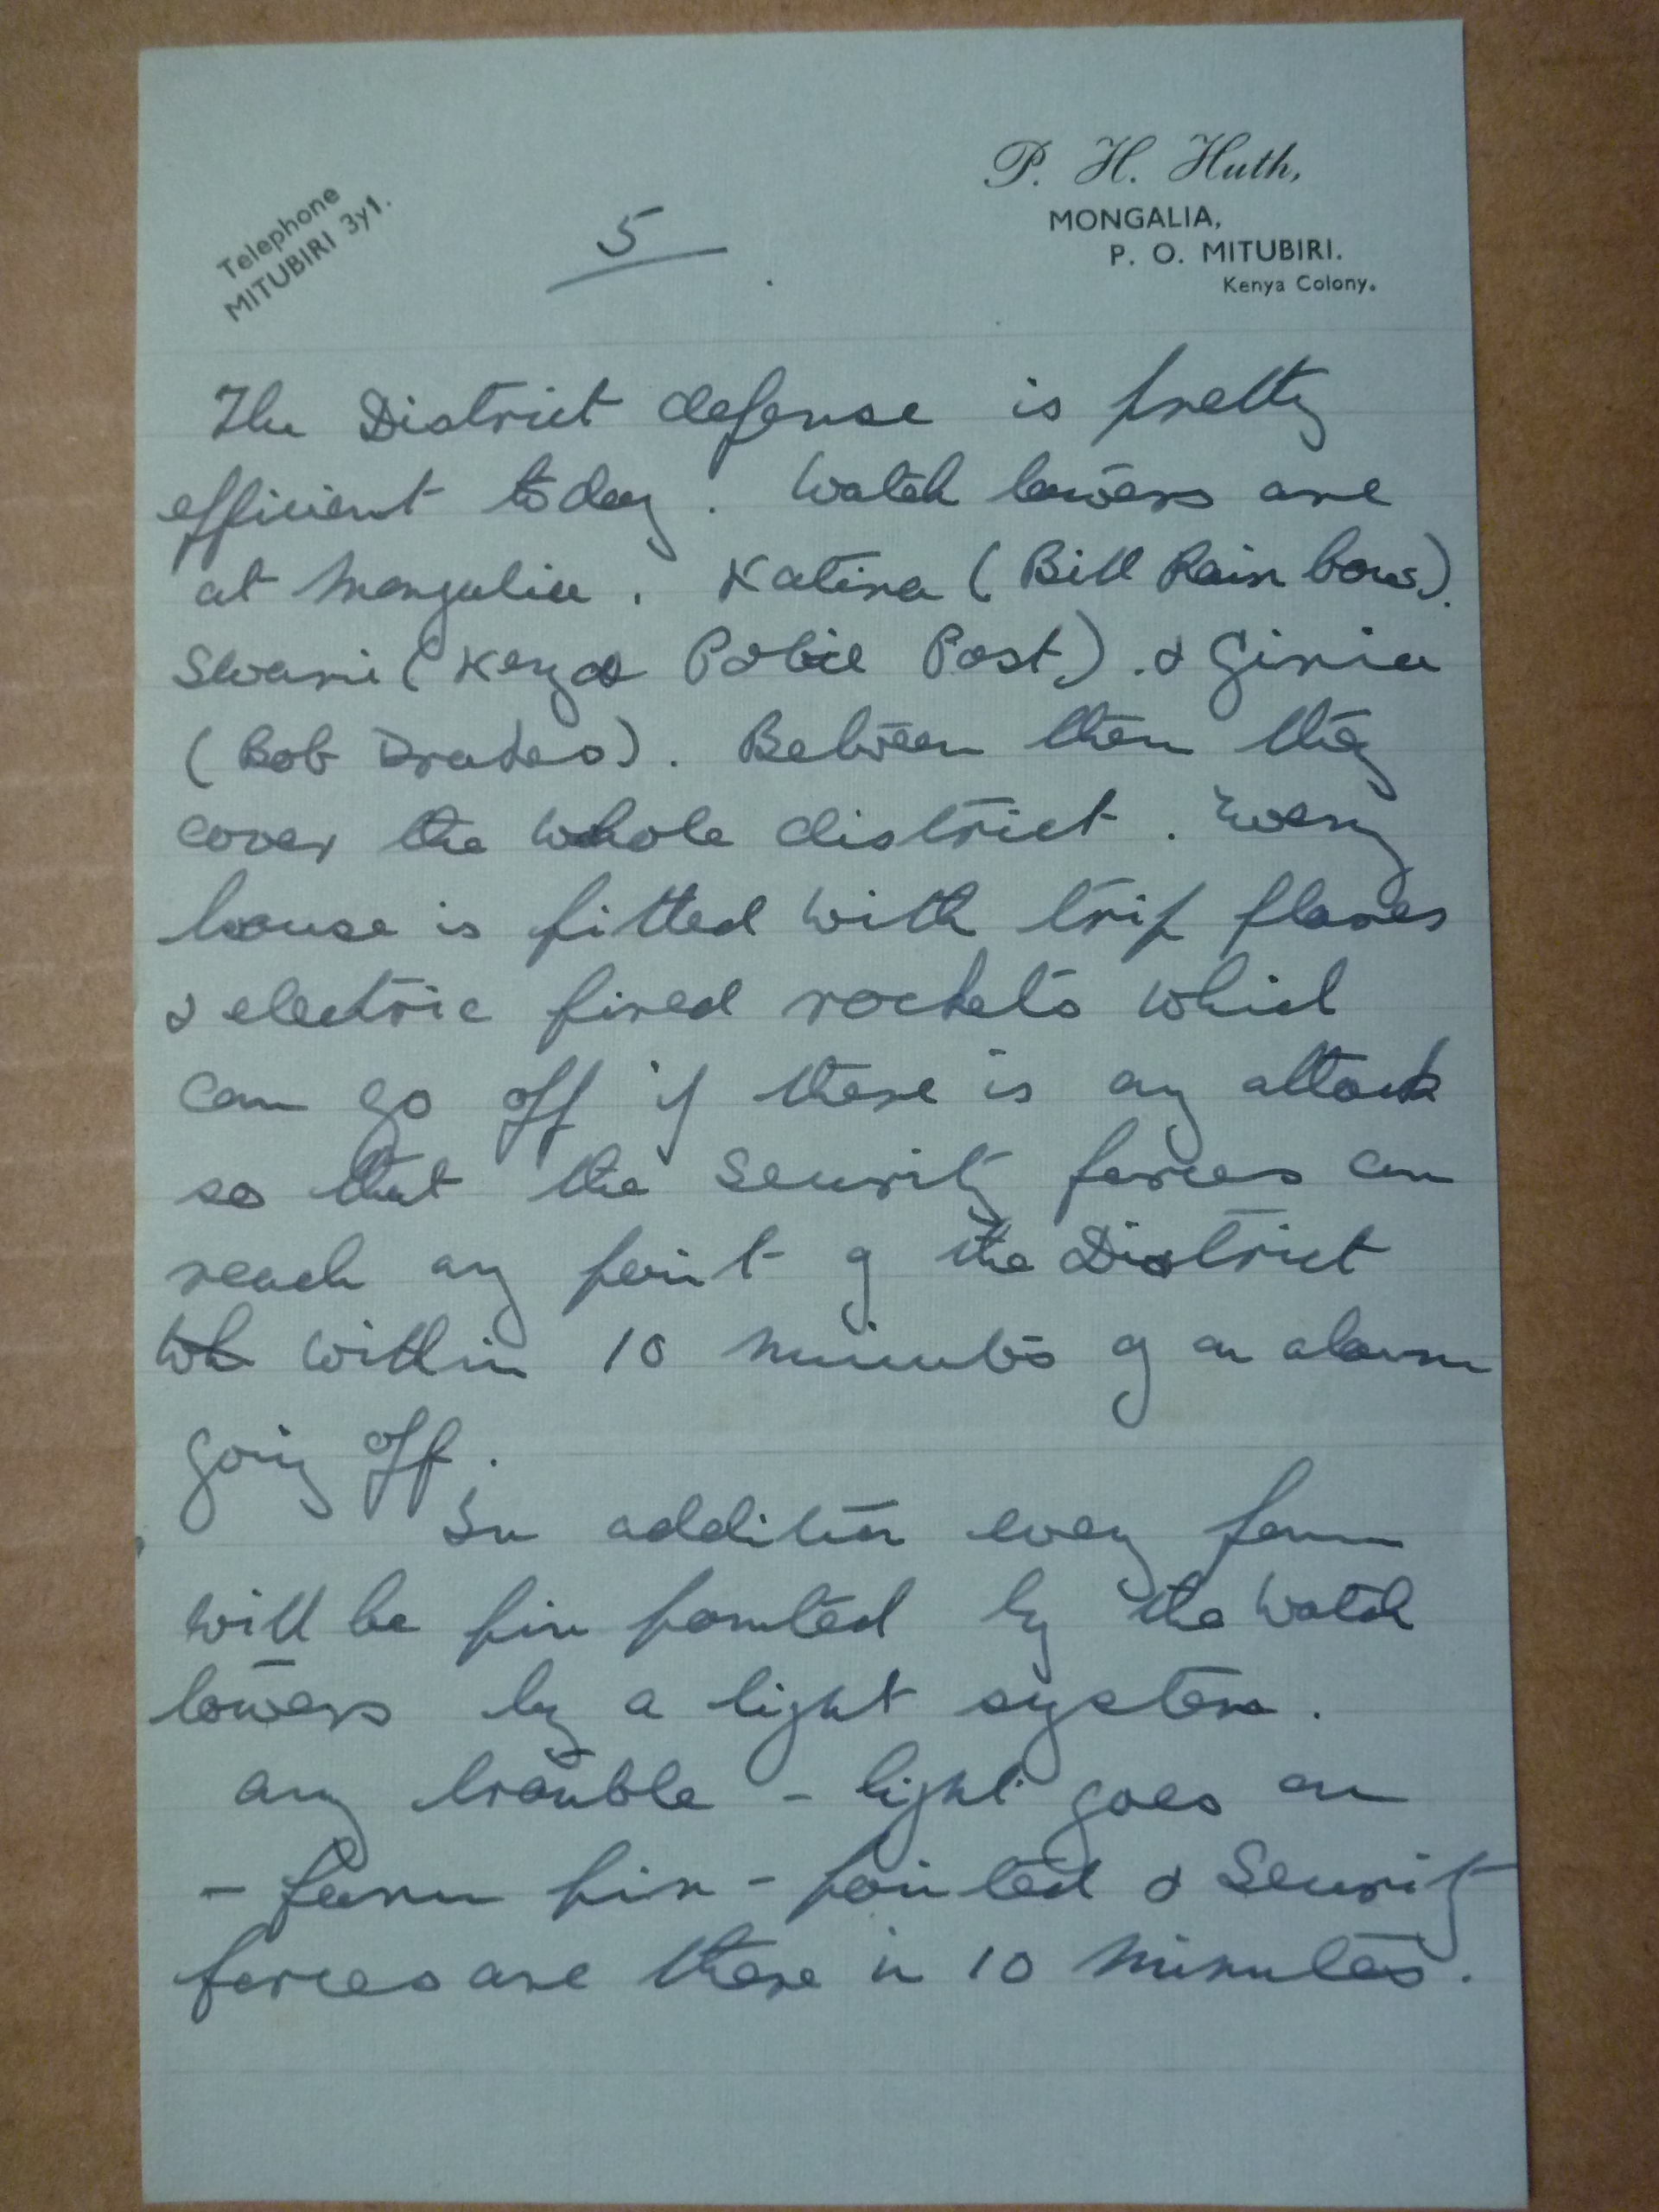 Telephone
MITUBIRI 3y1.
5
P. H. Huth,
MONGALIA,
P. O. MITUBIRI.
Kenya Colony.
The District defense is pretty
efficient today. Watch towers are
at Mongalia. Katina (Bill Rainbow).
(Kenya Police Post). & Ginia
(Bob). Between them they
cover the whole district. Every
house is fitted with trip flares
& electric fired rockets which
can go off if there is any attack
so that the security forces can
reach any point of the District
wh within 10 minutes of an alarm
going off.
In addition every farm
will be pin pointed by the Watch
towers by a light system.
any trouble - light goes on
- farm pin-pointed & Security
forces are there in 10 minutes.